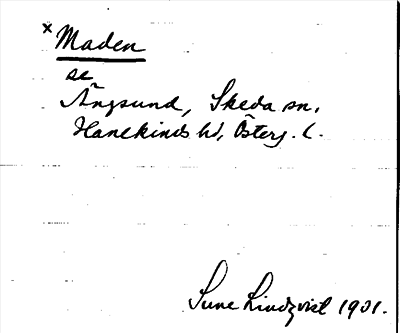 x Maden
se
Ängsund, Skeda sn,
Hanekinds hd, Österg. L.
Sune Lindqvist 1931.